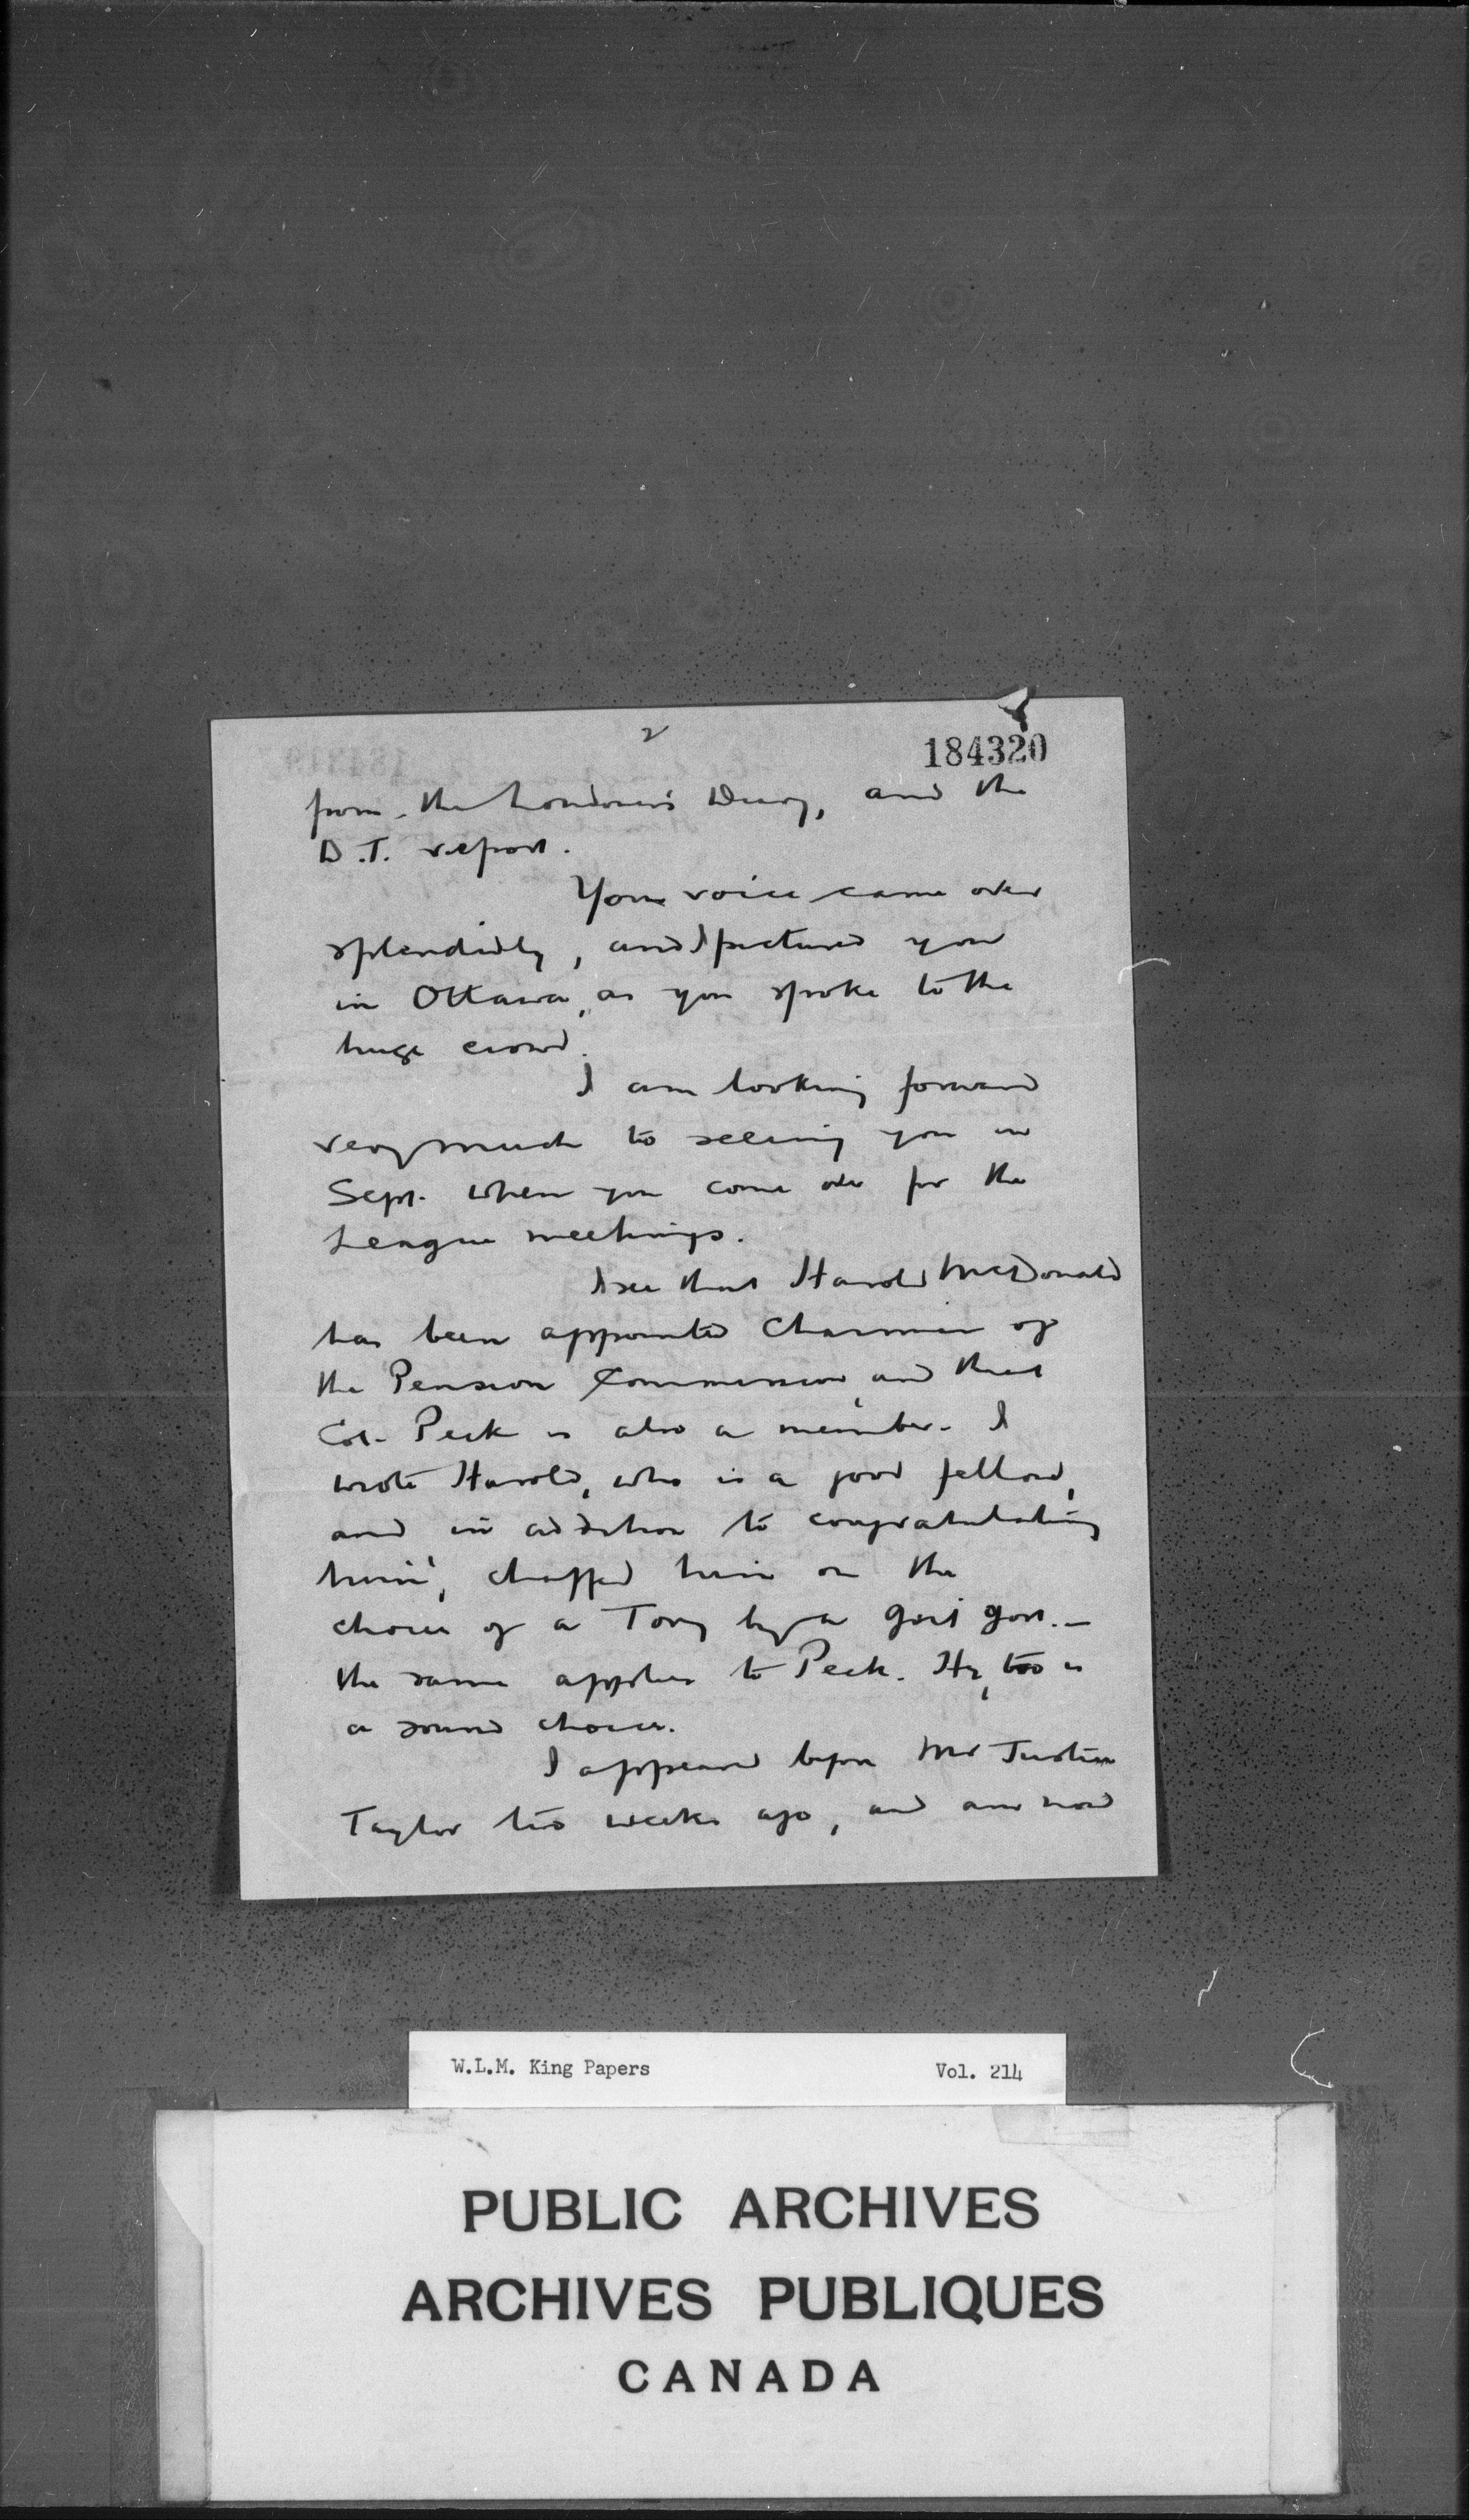 2
184320
from the Londoner's Diary, and the
D.T. report.
Your voice came over
splendidly, and I pictured you
in Ottawa, as you spoke to the
huge crowd.
I am looking forward
very much to seeing you in
Sept. when you come over for the
League meetings.
I see that Harold McDonald
has been appointed Chairman of
the Pension Commission, and that
Col. Peck is also a member. I
wrote Harold, who is a good fellow,
and in addition to congratulating
him, chaffed him on the
choice of a Tory by a govt. —
the same applies to Peck. He, too is
a sound choice.
I appeared before Mr Justice
Taylor two weeks ago, and am now
W.L.M. King Papers Vol. 214
PUBLIC ARCHIVES
ARCHIVES PUBLIQUES
CANADA